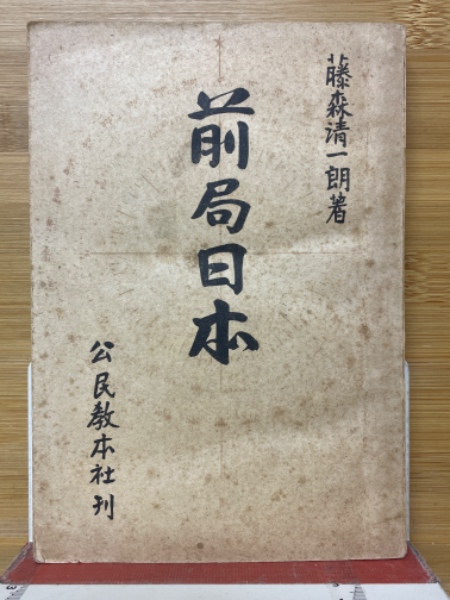 藤森清一朗著
前局日本
公民教本社刊